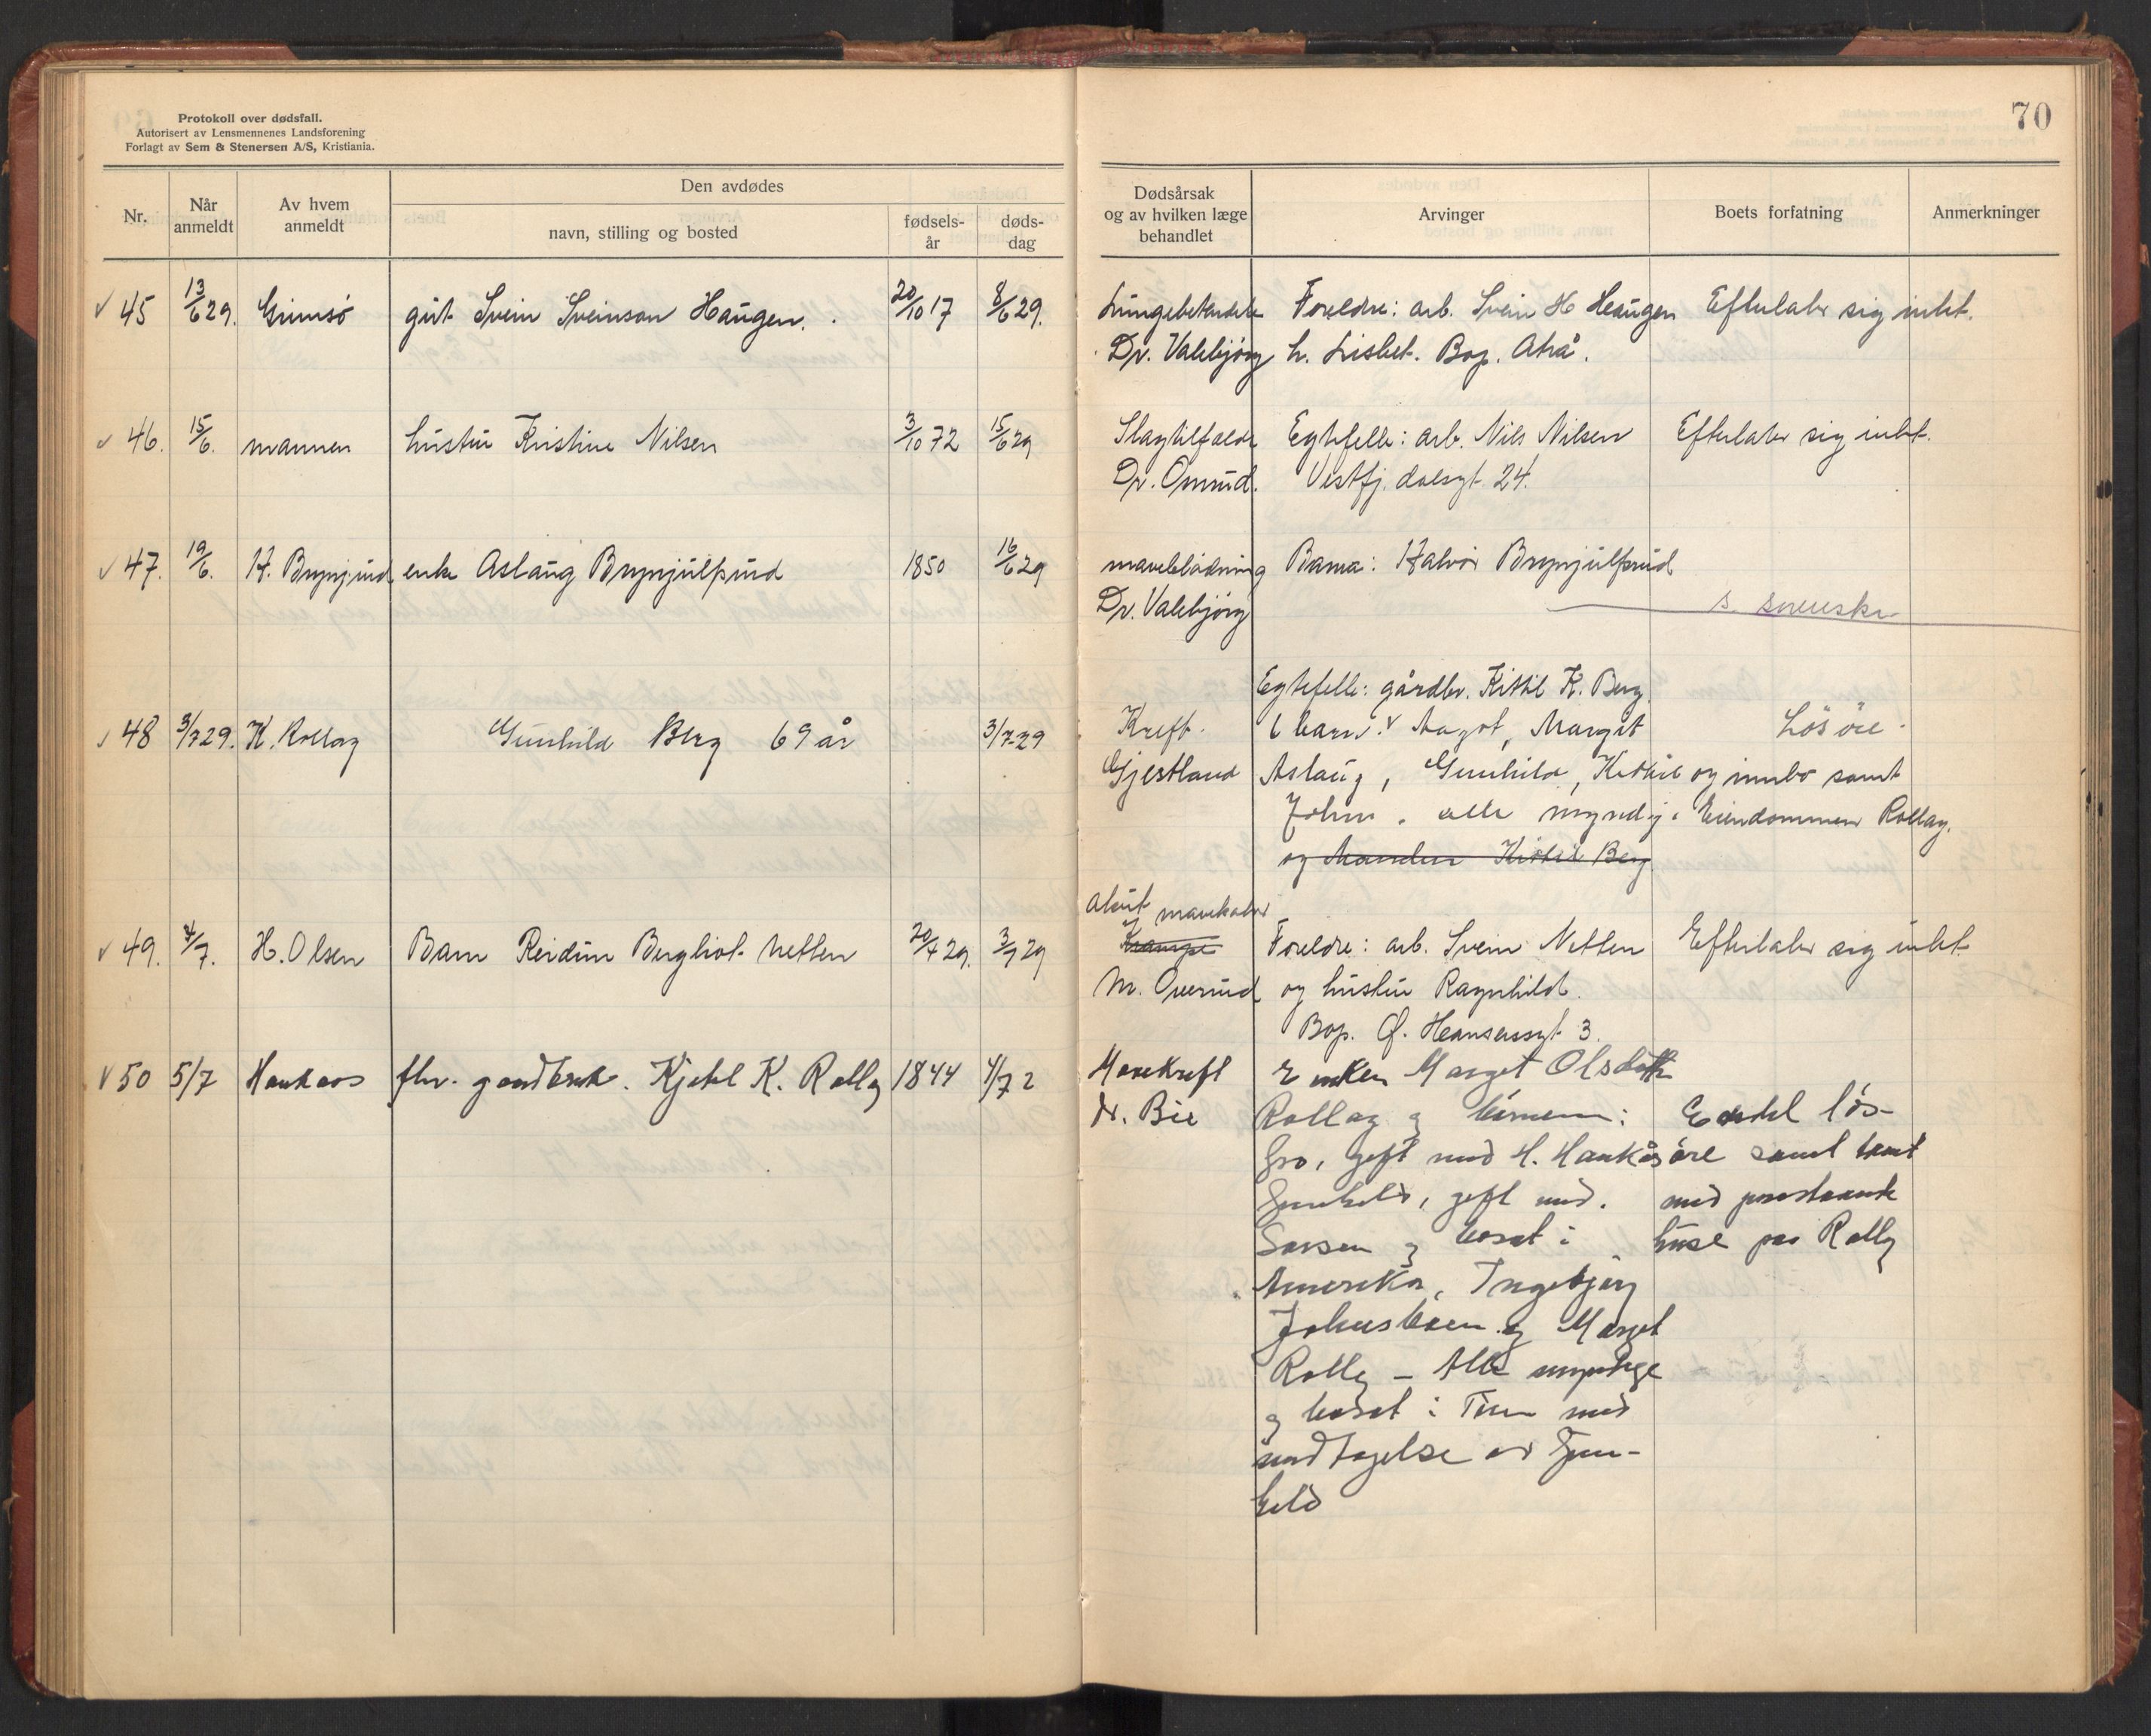 Protokoll over dødsfall.
Autorisert av Lensmennenes Landsforening
Forlagt av Sem & Stenersen A/S, Kristiania.
70
Nr.
Når anmeldt
Av hvem anmeldt
Den avdødes
navn, stilling og bosted
fødsels-år
døds-dag
Dødsårsak og av hvilken læge behandlet
Arvinger
Boets forfatning
Anmerkninger
45 13/6 29. Grimsö gut Svein Sveinson Haugen. 20/10 17 8/6 29. Lungebetendelse Foreldre: arb. Svein H Haugen Efterlater sig intet.
Dr. Valebjörg h. Lisbet. Bop. Atrå.
46. 15/6. mannen hustru Kristine Nilsen 3/10 72 15/6 29 Slagtilfælde Egtefelle: arb. Nils Nilsen Efterlater sig intet.
Dr. Omrud. Vestfj. dalsgt. 24.
47. 19/6. H. Brynjulfsrud enke Aslaug Brynjulfsrud 1850 16/6 29 maveblödning Barna: Halvor Brynjulfsrud
Dr. Valebjörg
Egtefelle: gårdbr. Kittil K. Berg
48 3/7 29. K. Rollag Gunhild Berg 69 år 3/7-29 Kreft. 6 barn: Aagot, Margit Lösöre
Gjestland Aslaug, Gunhild, Kittil og innbo samt
John. alle myndig. Eiendommen Rollag.
og Manden Kittil Berg
akut mavekatar
49. 4/7. H. Olsen Barn Reidun Bergliot Netten 20/4 29. 3/7 29 Krampe Foreldre: arb. Svein Netten Efterlater sig intet
M. Overrud og hustru Ragnhild.
Bop. O. Hansensgt. 3.
50 5/7 Haukaas fhv. gaardbruk. Kjetil K. Rollag 1844 4/7 2 Mavekreft Enken Marget Olsdatter
Dr. Bie Rollag og börnene: Endel lös-
Gro, gift med H. Haukås öre samt tomt
Gunhild, gift med. med paastaaende
og bosat i huse paa Rollag
Amerika, Ingebjörg
Johnsbraaten og Marget
Rollag – Alle myndige
og bosat i Tinn med
undtagelse av Gun-
hild